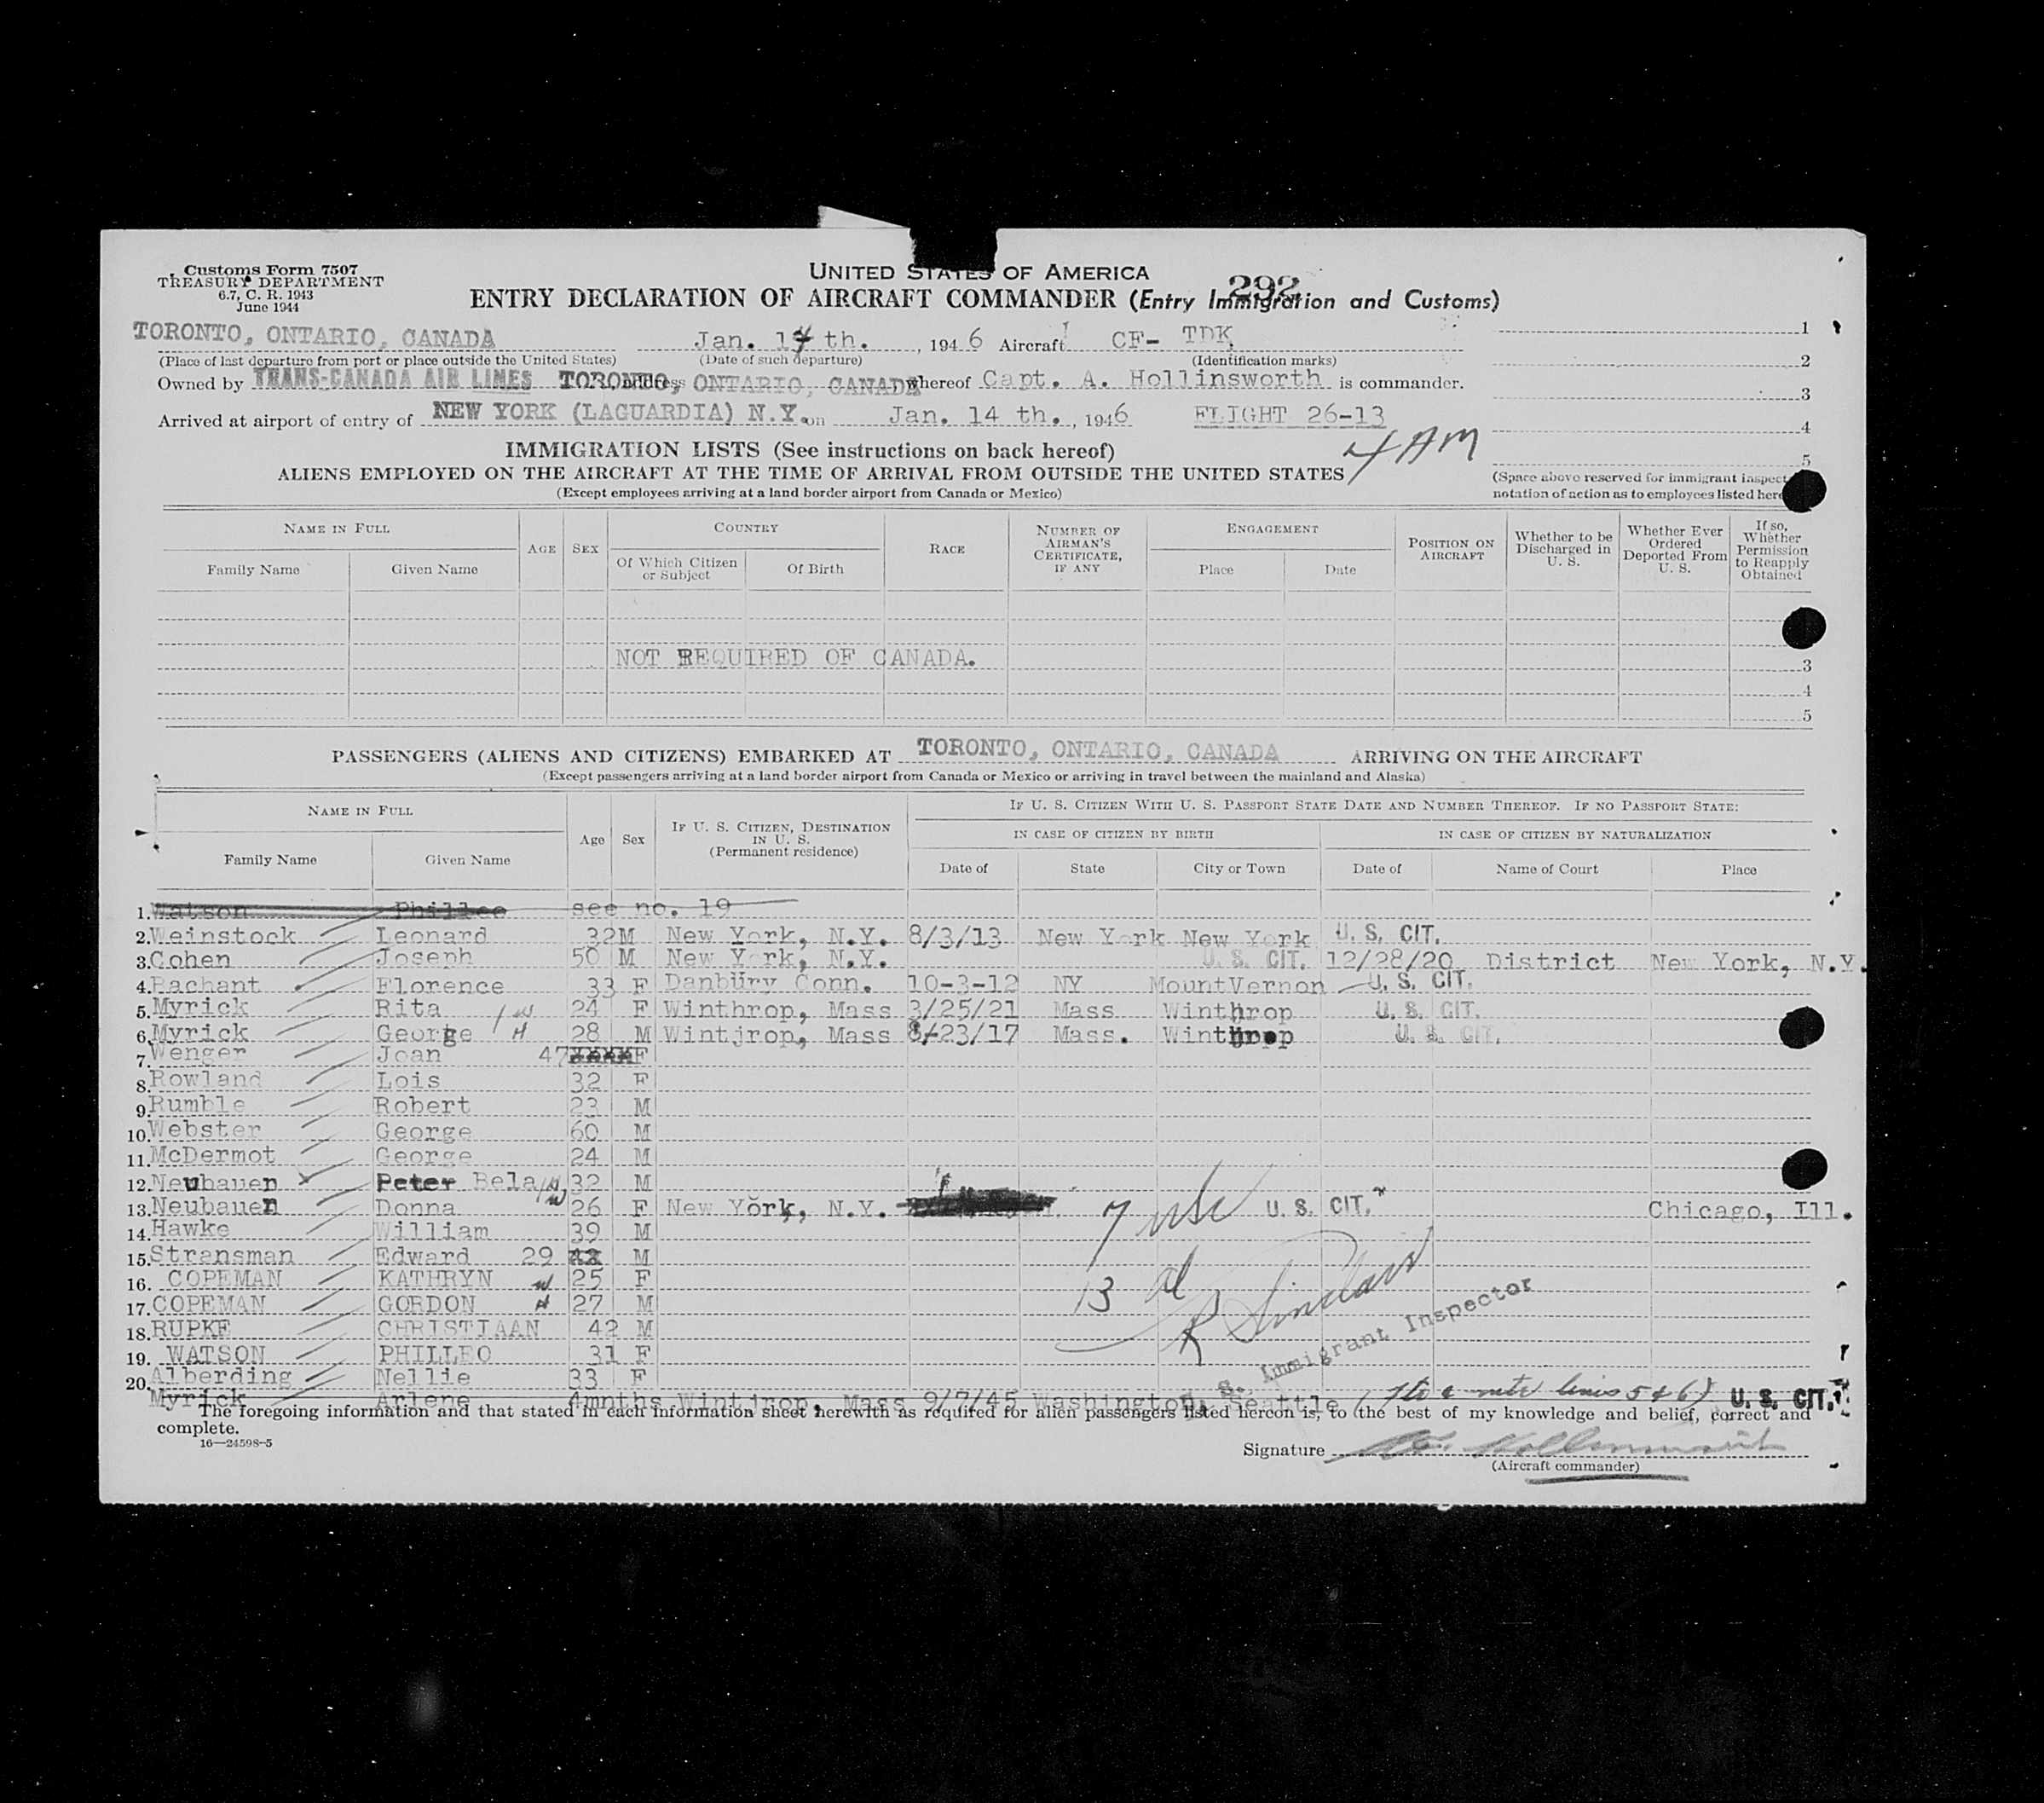 Customs Form 7507
TREASURY DEPARTMENT
6.7, C. R. 1943
June 1944
UNITED STATES OF AMERICA
292
ENTRY DECLARATION OF AIRCRAFT COMMANDER (Entry Immigration and Customs)
TORONTO, ONTARIO, CANADA Jan. 14 th. , 1946 Aircraft CF- TDK 1
(Place of last departure from port or place outside the United States) (Date of such departure) (Identification marks) 2
Owned by TRANS-CANADA AIR LINES TORONTO, ONTARIO, CANADA whereof Capt. A. Hollinsworth is commander. 3
Arrived at airport of entry of NEW YORK (LAGUARDIA) N.Y. on Jan. 14 th. , 1946 FLIGHT 26-13 4
IMMIGRATION LISTS (See instructions on back hereof) 4 AM 5
ALIENS EMPLOYED ON THE AIRCRAFT AT THE TIME OF ARRIVAL FROM OUTSIDE THE UNITED STATES (Space above reserved for immigrant
(Except employees arriving at a land border airport from Canada or Mexico) notation of action as to employees listed
NAME IN FULL AGE SEX COUNTRY RACE NUMBER OF AIRMAN'S CERTIFICATE, IF ANY ENGAGEMENT POSITION ON AIRCRAFT Whether to be Discharged in U. S. Whether Ever Ordered Deported From U. S. If so, Whether Permission to Reapply Obtained
Family Name Given Name Of Which Citizen or Subject Of Birth Place Date
NOT REQUIRED OF CANADA. 3
4
5
PASSENGERS (ALIENS AND CITIZENS) EMBARKED AT TORONTO, ONTARIO, CANADA ARRIVING ON THE AIRCRAFT
(Except passengers arriving at a land border airport from Canada or Mexico or arriving in travel between the mainland and Alaska)
NAME IN FULL Age Sex IF U. S. CITIZEN, DESTINATION IN U. S. (Permanent residence) IF U. S. CITIZEN WITH U. S. PASSPORT STATE DATE AND NUMBER THEREOF. IF NO PASSPORT STATE:
IN CASE OF CITIZEN BY BIRTH IN CASE OF CITIZEN BY NATURALIZATION
Family Name Given Name Date of State City or Town Date of Name of Court Place
1. Watson Philleo see no. 19
2. Weinstock Leonard 32 M New York, N.Y. 8/3/13 New York New York U. S. CIT.
3. Cohen Joseph 50 M New York, N.Y. U. S. CIT. 12/28/20 District New York, N.Y.
4. Bachant Florence 33 F Danbury Conn. 10-3-12 NY MountVernon U. S. CIT.
5. Myrick Rita W 24 F Winthrop, Mass 3/25/21 Mass Winthrop U. S. CIT.
6. Myrick George H 28 M Wintjrop, Mass 8/23/17 Mass. Winthrop U. S. CIT.
7. Wenger Joan 47 F
8. Rowland Lois 32 F
9. Rumble Robert 23 M
10. Webster George 60 M
11. McDermot George 24 M
12. Neubauer Peter Bela H 32 M
13. Neubauer Donna W 26 F New York, N.Y. 7 USC U. S. CIT. Chicago, Ill.
14. Hawke William 39 M
15. Stransman Edward 29 M
16. COPEMAN KATHRYN W 25 F 13 al
17. COPEMAN GORDON H 27 M R Sinclair
18. RUPKE CHRISTIAAN 42 M Immigrant Inspector
19. WATSON PHILLEO 31 F
20. Alberding Nellie 33 F
Myrick Arlene 4mnths Wintjrop, Mass 9/7/45 Washington, Seattle lines 5 & 6) U. S. CIT.
The foregoing information and that stated in each information sheet herewith as required for alien passengers listed hereon is, to the best of my knowledge and belief, correct and
complete.
16—24598-5
Signature A. Hollinsworth
(Aircraft commander)